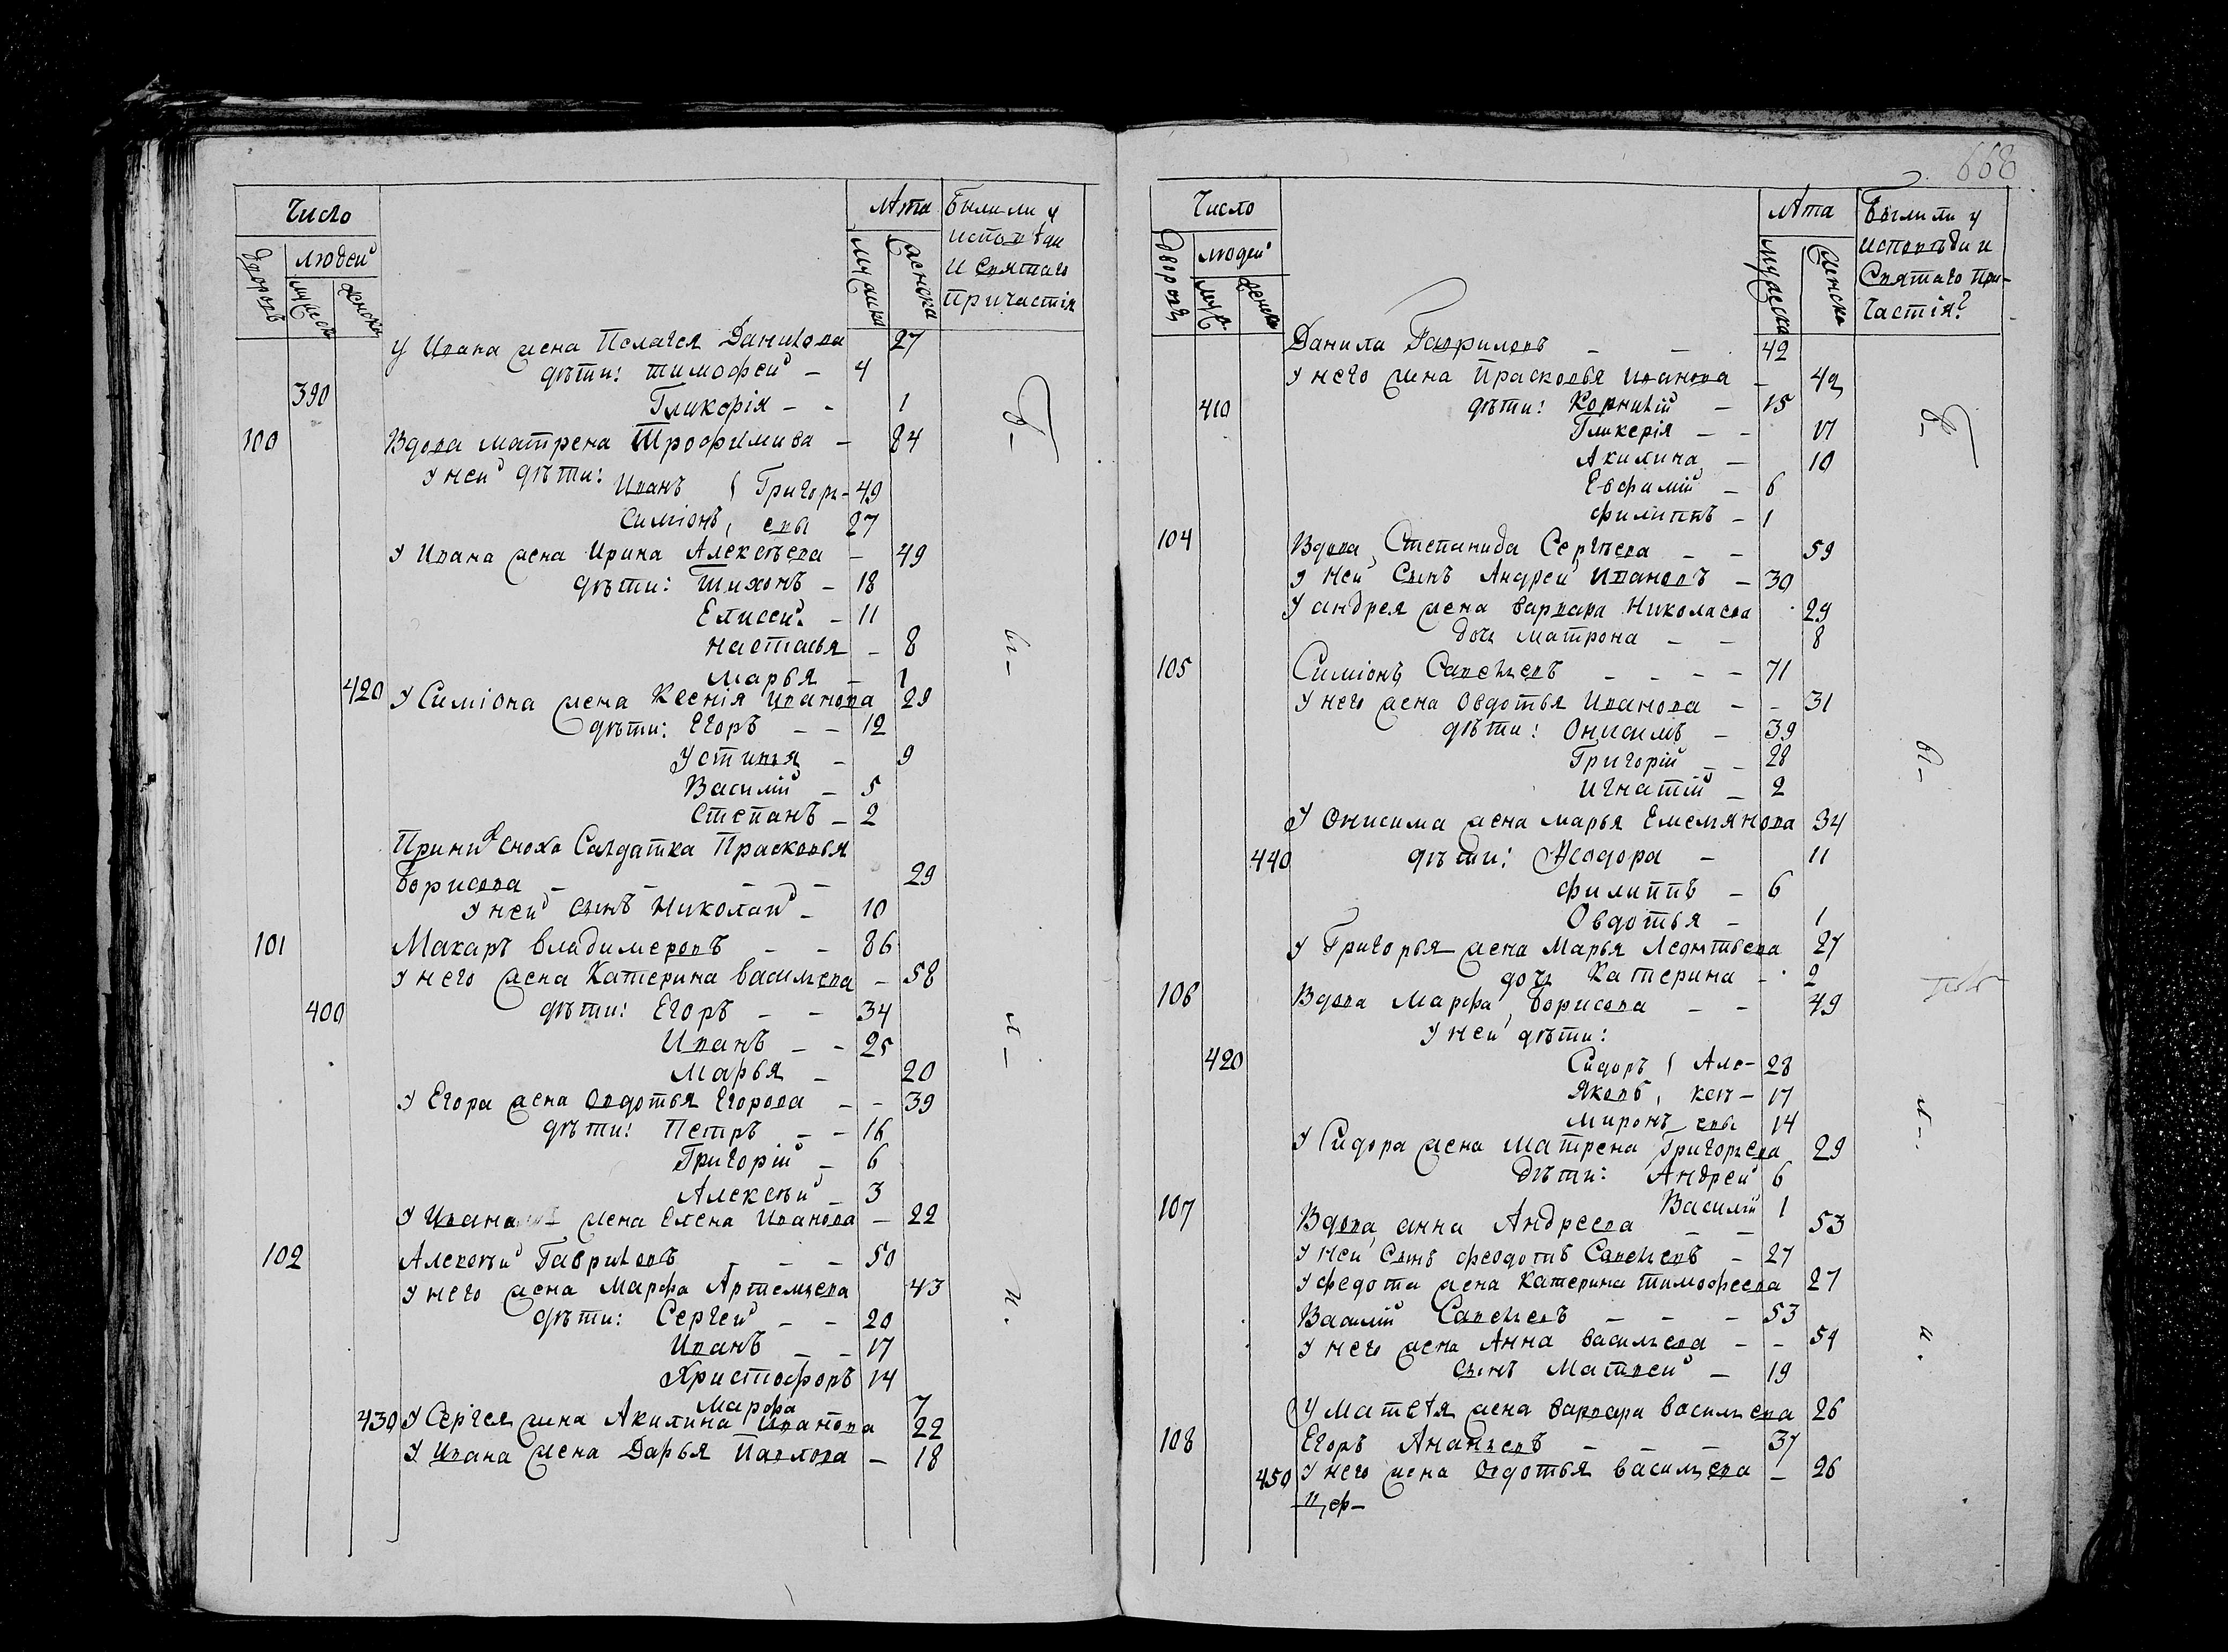 Число
дворовъ
людей
мужеска
женска
Лѣта
мужска
женска
Были ли у
исповѣди
и Святаго
причастія
У Ивана жена Пелагея Данилова 27
дѣти: тимофей – 4
390 Гликерія – – 1
100 Вдова матрена Трофимива – 84
У ней дѣти: Иванъ Григорь- 49
Симіонъ, евы 27
У Ивана жена Ирина Алексѣева – 49
дѣти: Тихонъ – 18
Елисей – 11
настасья – 8
марья – 1
420 У Симіона жена Ксенія Иванова 29
дѣти: Егоръ – – 12
Устинья – 9
Василій – 5
Степанъ – 2
При ней сноха Салдатка Прасковья
Борисова – – – – 29
У ней сынъ Николай – 10
101 Макаръ владимеровъ – – 86
У него жена Катерина васильева – 58
400 дѣти: Егоръ – – 34
Иванъ – – 25
Марья – 20
У Егора жена Овдотья Егорова – – 39
дѣти: Петръ – – 16
Григорій – 6
Алексѣй – 3
У Ивана жена Елена Иванова – 22
102 Алексѣй Гавриловъ – – – 50
У него жена Марфа Артемьева 43
дѣти: Сергей – – 20
Иванъ – – 17
Христофоръ 14
Марфа 7
430 У Сергея жена Акилина Иванова 22
У Ивана жена Дарья Павлова – 18
б–
ы–
л–
и.
668
Число
дворовъ
людей
муж
женска
Лѣта
мужеска
женска
Были ли у
исповѣди и
Святаго При-
частія?
Данила Гавриловъ – – 42
У него жена Прасковья Иванова – 42
410 дѣти: Корнилій – 15
Гликерія – – 17
Акилина – 10
Евфимій – 6
филиппъ – 1
104 Вдова Степанида Сергѣева – – 59
У ней Сынъ Андрей Ивановъ – 30
У андрея жена варвара Николаева 29
дочь матрона – – 8
105 Симіонъ Савельевъ – – – – 71
У него жена Овдотья Иванова – – 31
дѣти: Онисимъ – 39
Григорій – – 28
Игнатій – 2
У Онисима жена марья Емельянова 34
440 дѣти: Ѳеодора – 11
филиппъ – 6
Овдотья – 1
У Григорья жена Марья Леонтьева 27
дочь Катерина – 2
106 Вдова Марфа Борисова – – 49
У ней дѣти:
420 Сидоръ Але- 28
Яковъ, ксѣ- 17
миронъ евы 14
У Сидора жена Матрена Григорьева 29
дѣти: Андрей 6
Василій 1
107 Вдова анна Андреева – – 53
У ней Сынъ феодотъ Савельевъ – 27
У федота жена Катерина тимофеева 27
Василій Савельевъ – – – 53
У него жена Анна васильева – – 54
сынъ Матвей – 19
У Матвѣя жена варвара васильева 26
108 Егоръ Ананьевъ – – – 37
450 У него жена Овдотья васильева – 26
б–
ы–
л–.
и.